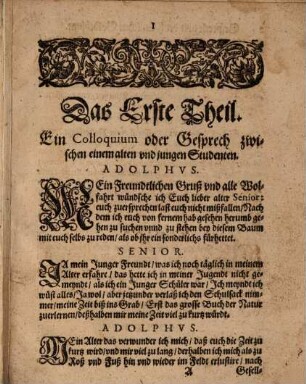 1
Das Erste Theil.
Ein Colloquium oder Gesprech zwi-
schen einem alten vnd jungen Studenten.
ADOLPHVS.
MEin Freundtlichen Gruß vnd alle Wol-
fahrt wündsche ich Euch lieber alter Senior:
euch zuersprechen laß euch nicht mißfallen / Nach
dem ich euch von fernem hab gesehen herumb ge-
hen zu suchen vnnd zu stehen bey diesem Baum
mit euch selbs zu reden / als ob jhr ein sonderlichs fürhettet.
SENIOR.
JA mein Junger Freundt / was ich noch täglich in meinem
Alter erfahre / das hette ich in meiner Jugendt nicht ge-
meyndt / als ich ein Junger Schüler war / Ich meyndt ich
wüst alles / Ja wol / aber jezunder verlaß ich den Schulsack nim-
mer / meine Zeit biß ins Grab / Erst das grosse Buch der Natur
zu erlernen / deßhalben mir meine Zeit viel zu kurtz würdt.
ADOLPHVS.
MEin Alter das verwunder ich mich / daß euch die Zeit zu
kurtz wird / vnd mir viel zu lang / derhalben ich mich als zu
Roß vnd Fuß hin vnd wieder im Feldt erlustire / nach
A Gesell-